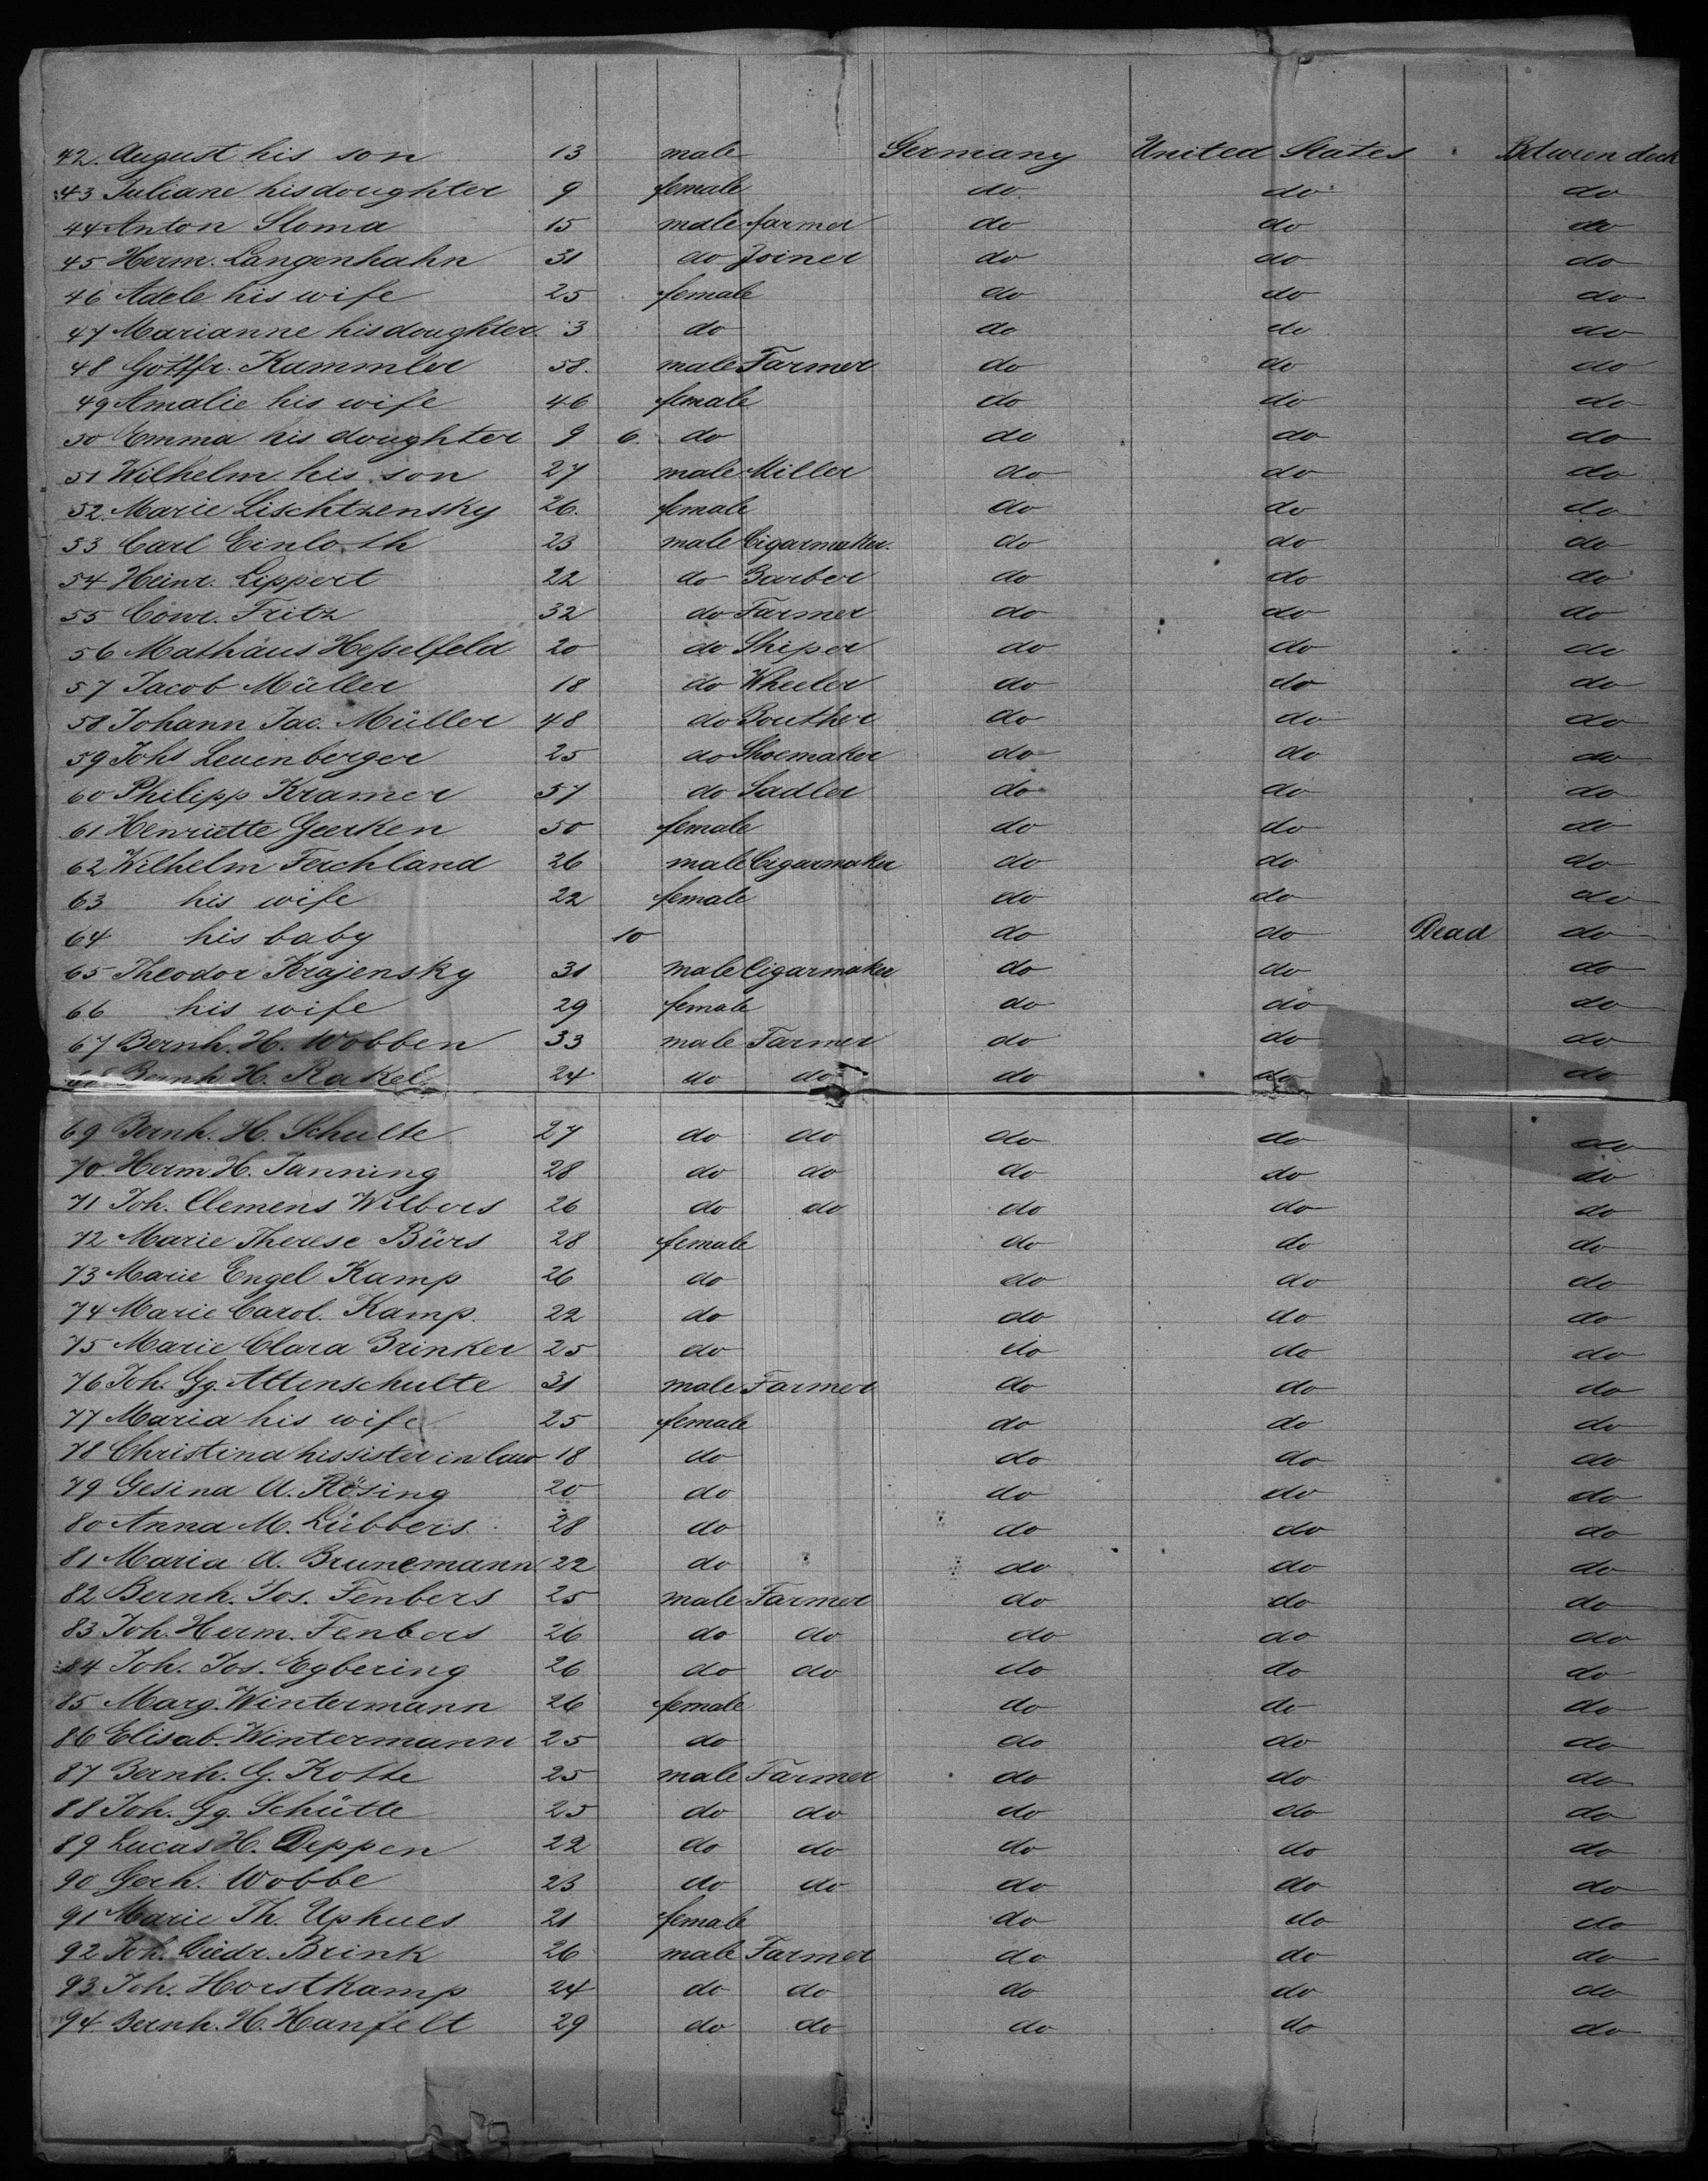 42. August his son 13 male Germany United States Between deck
43 Juliane his doughter 9 female do do do
44 Anton Sloma 15 male farmer do do do
45 Herm. Langenhahn 31 do Joiner do do do
46 Adele his wife 25 female do do do
47 Marianne his doughter 3 do do do do
48 Gottfr. Kammler 58. male Farmer do do do
49 Amalie his wife 46 female do do do
50 Emma his doughter 9 6. do do do do
51 Wilhelm his son 27 male Miller do do do
52. Marie Lischtzensky 26. female do do do
53 Carl Einloth 23 male Cigarmaker. do do do
54 Heinr. Lippert 22 do Barber do do do
55 Conr. Fritz 32 do Farmer do do do
56 Mathäus Heßelfeld 20 do Shiper do do do
57 Jacob Müller 18 do Wheeler do do do
58 Johann Jac. Müller 48 do Bouther do do do
59 Johs Leuenberger 25 do Shoemaker do do do
60 Philipp Kramer 57 do Sadler do do do
61 Henriette Geerken 50 female do do do
62 Wilhelm Ferchland 26 male Cigarmaker do do do
63 his wife 22 female do do do
64 his baby 10 do do Dead do
65 Theodor Krajensky 31 male Cigarmaker do do do
66 his wife 29 female do do do
67 Bernh. H. Wobben 33 male Farmer do do do
68 Bernh H. Rakel 24 do do do do do
69 Bernh. H. Schulte 27 do do do do do
70 Herm. H. Janning 28 do do do do do
71 Joh. Clemens Wilbers 26 do do do do do
72 Marie Therese Bürs 28 female do do do
73 Marie Engel Kamp 26 do do do do
74 Marie Carol. Kamp. 22 do do do do
75 Marie Clara Brinker 25 do do do do
76 Joh. Gg. Attenschulte 31 male Farmer do do do
77 Maria his wife 25 female do do do
78 Christina his sister in law 18 do do do do
79 Gesina A. Rösing 20 do do do do
80 Anna M. Lübbers 28 do do do do
81 Maria A. Brunemann 22 do do do do
82 Bernh. Jos. Fenbers 25 male Farmer do do do
83 Joh. Herm. Fenbers 26 do do do do do
84 Joh. Jos. Egbering 26 do do do do do
85 Marg. Wintermann 26 female do do do
86 Elisab. Wintermann 25 do do do do
87 Bernh. G. Kotte 25 male Farmer do do do
88 Joh. Gg. Schütte 25 do do do do do
89 Lucas H. Deppen 22 do do do do do
90 Gerh. Wobbe 23 do do do do do
91 Marie Th. Uphues 21 female do do do
92 Joh. Diedr. Brink 26 male Farmer do do do
93 Joh. Horstkamp 24 do do do do do
94. Bernh. H. Hanfelt 29 do do do do do